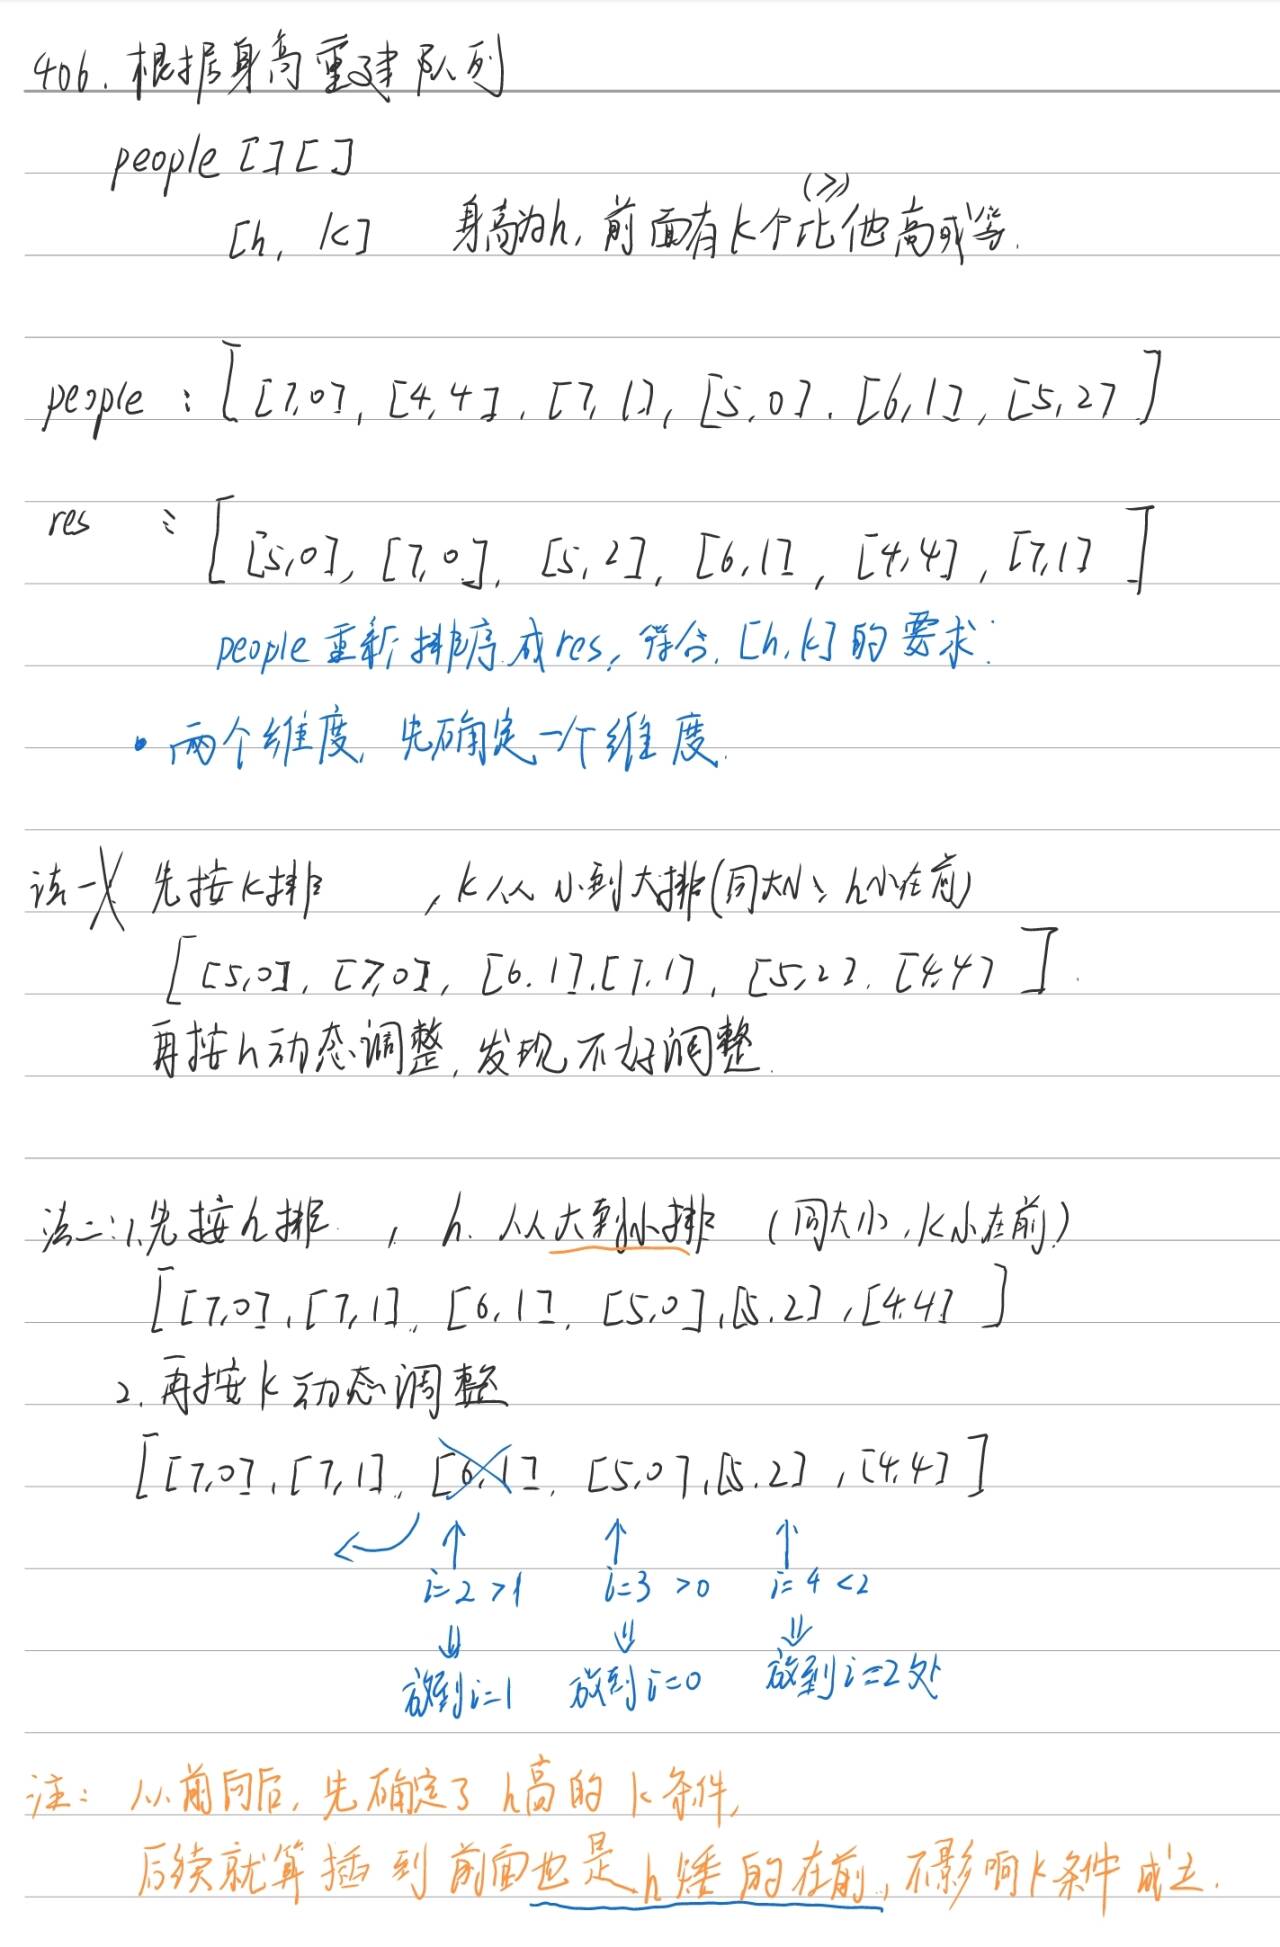 406. 根据身高重建队列
people [][]
(≥)
[h, k] 身高为h, 前面有k个比他高或等.
people : [ [7,0], [4,4], [7,1], [5,0], [6,1], [5,2] ]
res : [ [5,0], [7,0], [5,2], [6,1], [4,4], [7,1] ]
people 重新排序成res, 符合 [h,k] 的要求.
• 两个维度, 先确定一个维度.
法一 先按k排 , k从小到大排(同大小, h小在前)
[ [5,0], [7,0], [6,1], [7,1], [5,2], [4,4] ]
再按h动态调整, 发现不好调整.
法二: 1.先按h排 , h 从大到小排 (同大小, k小在前)
[ [7,0], [7,1], [6,1], [5,0], [5,2], [4,4] ]
2. 再按k动态调整
[ [7,0], [7,1], [6,1], [5,0], [5,2], [4,4] ]
↑ ↑ ↑
i=2 >1 i=3 >0 i=4 <2
⇓ ⇓ ⇓
放到i=1 放到i=0 放到i=2处
注: 从前向后, 先确定了h高的k条件,
后续就算插到前面也是h矮的在前, 不影响k条件成立.